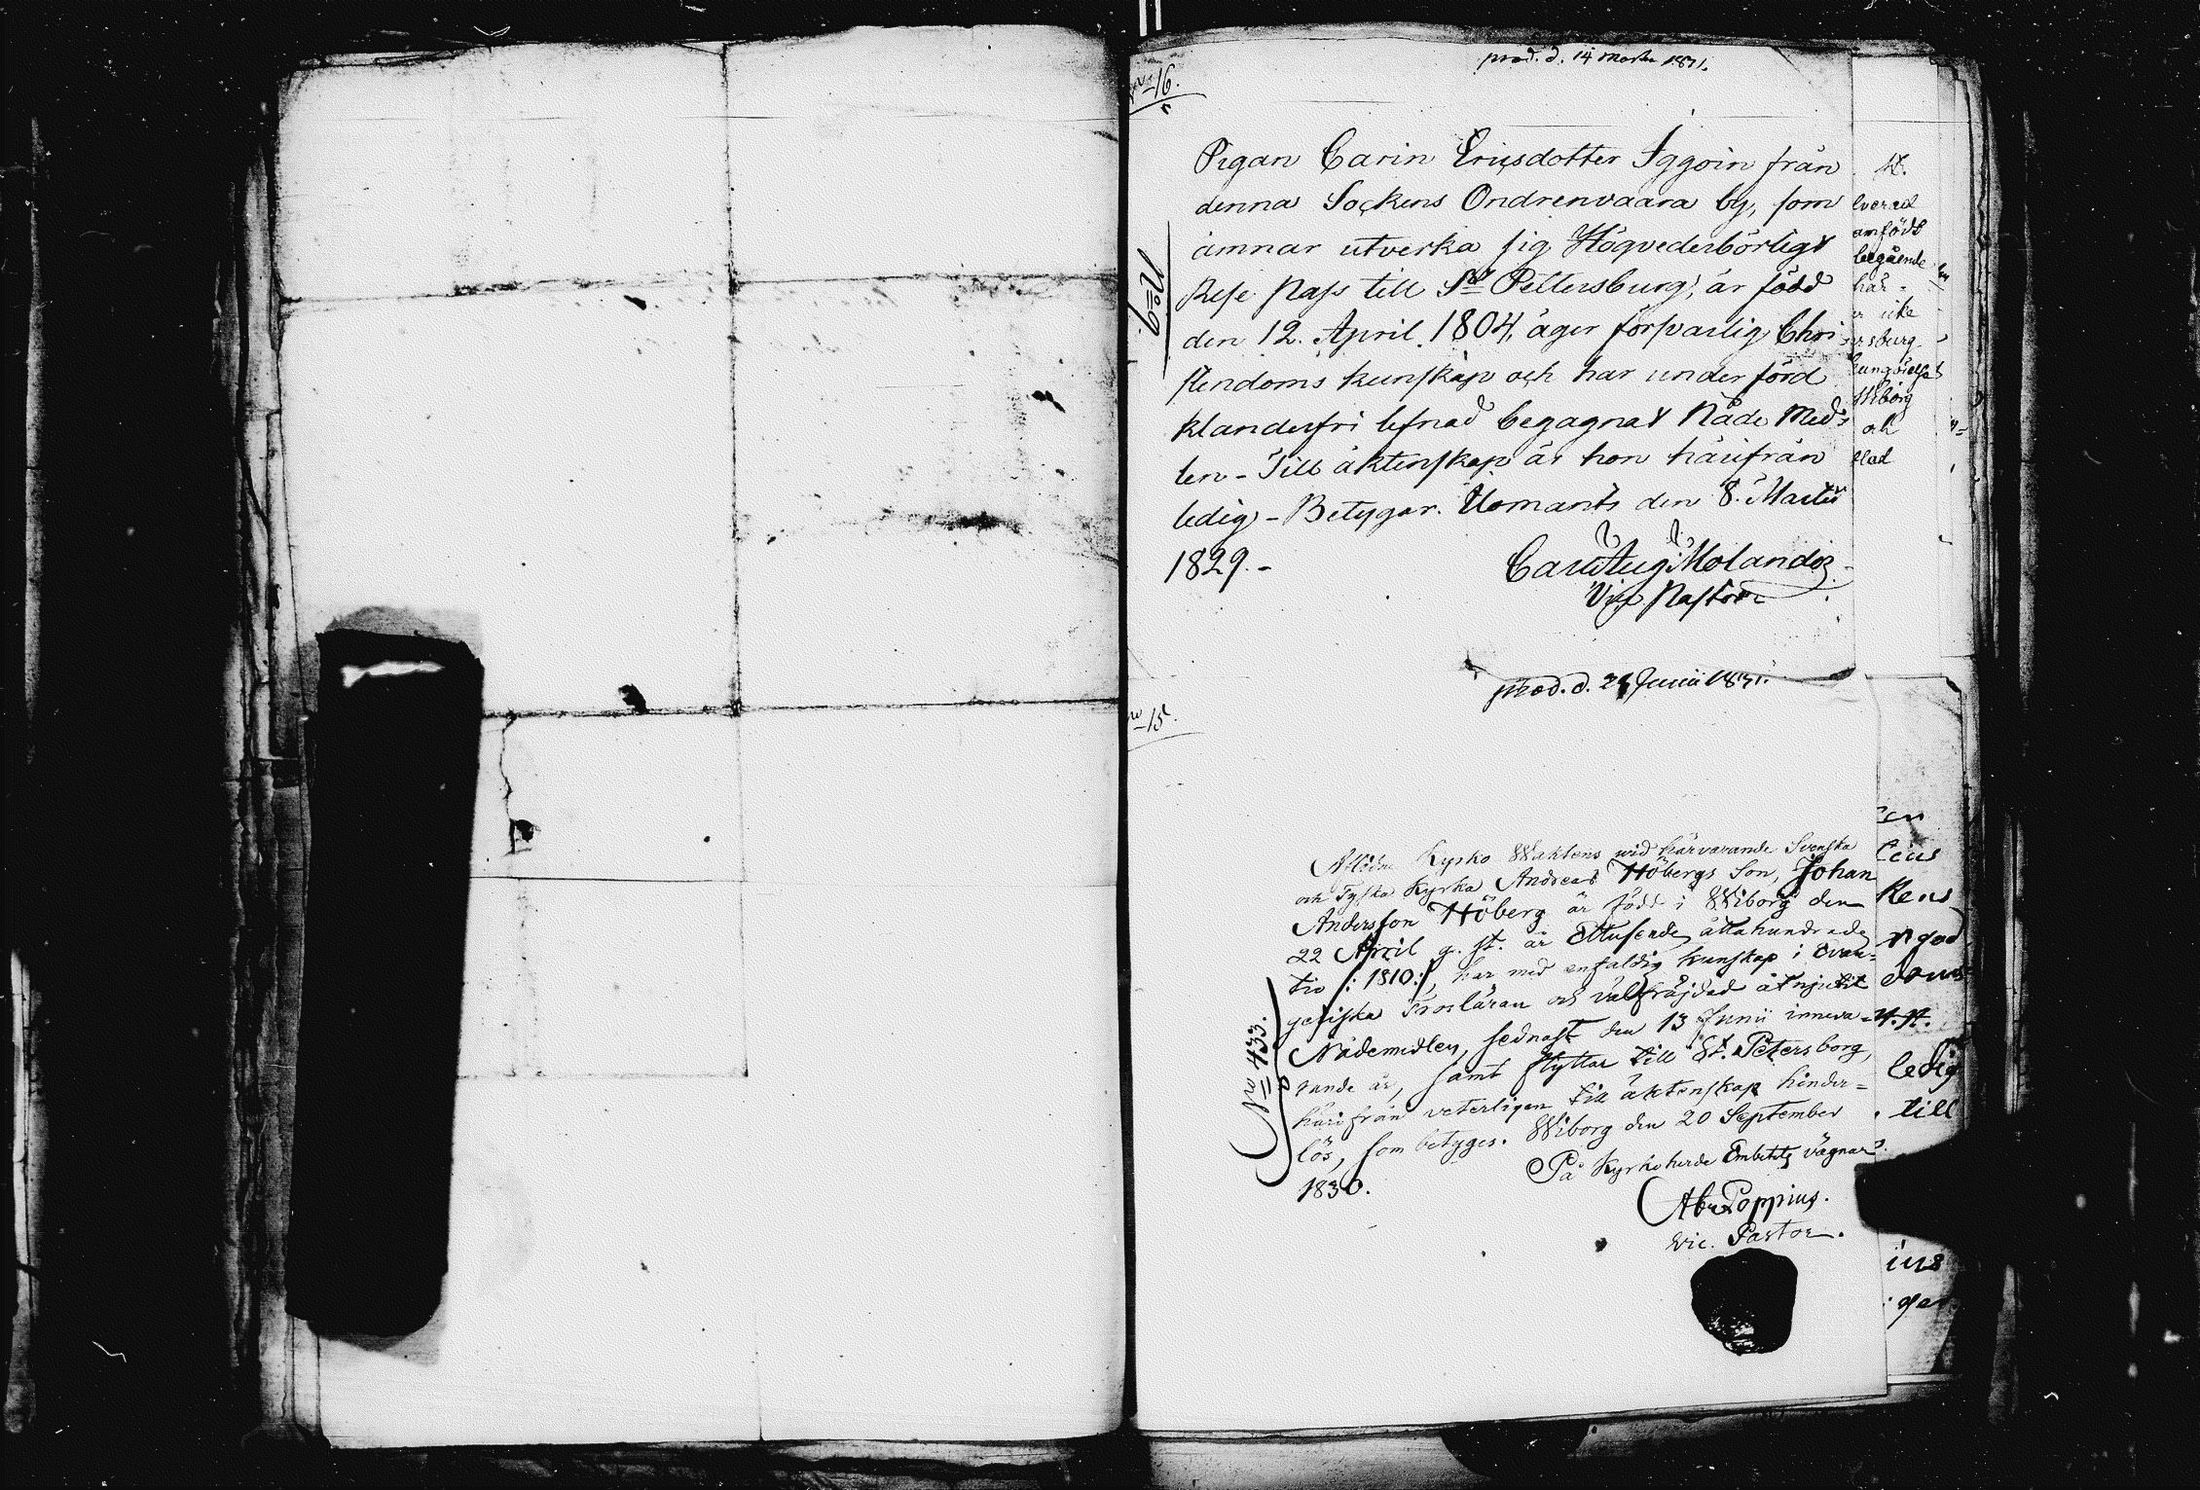 prod. d. 14 Martii 1831.
No 16.
No 9
Pigan Carin Ericsdotter Iggoin från
denna Sockens Ondrenvaara by, som
ämnar utverka sig Högvederbörligt
Rese Pass till St Pettersburg; är född
den 12. April 1804, äger försvarlig Chri-
stendoms kunskap och har under förd
klanderfri lefnad begagnat Nåde Med-
len - Till äktenskap är hon härifrån
ledig - Betygar. Ilomants den 8. Martii
1829. -
Carl Aug Molander
Vice Pastor
prod. d. 21 Junii 1831.
No 15.
No 433.
Aflidne Kyrko Waktens wid härvarande Svenska
och Tyska Kyrka Andreas Höbergs Son, Johan
Andersson Höberg är född i Wiborg den
22 April g. st. år Ettusende åttahundrade
tio /: 1810:/, har med enfaldig kunskap i Evan-
geliska Trosläran och välfräjdad åtnjutit
Nådemedlen, sednast den 13 Junii inneva-
rande år, samt flyttar till St. Petersborg,
härifrån veterligen till äktenskap hinder-
lös, som betyges. Wiborg den 20 September
1830.
På Kyrkoherde Embetets vägnar
Abr. Poppius.
Vic. Pastor.
st.
amfödt
här-
ike
Wiborg
och
kens
ledig
till